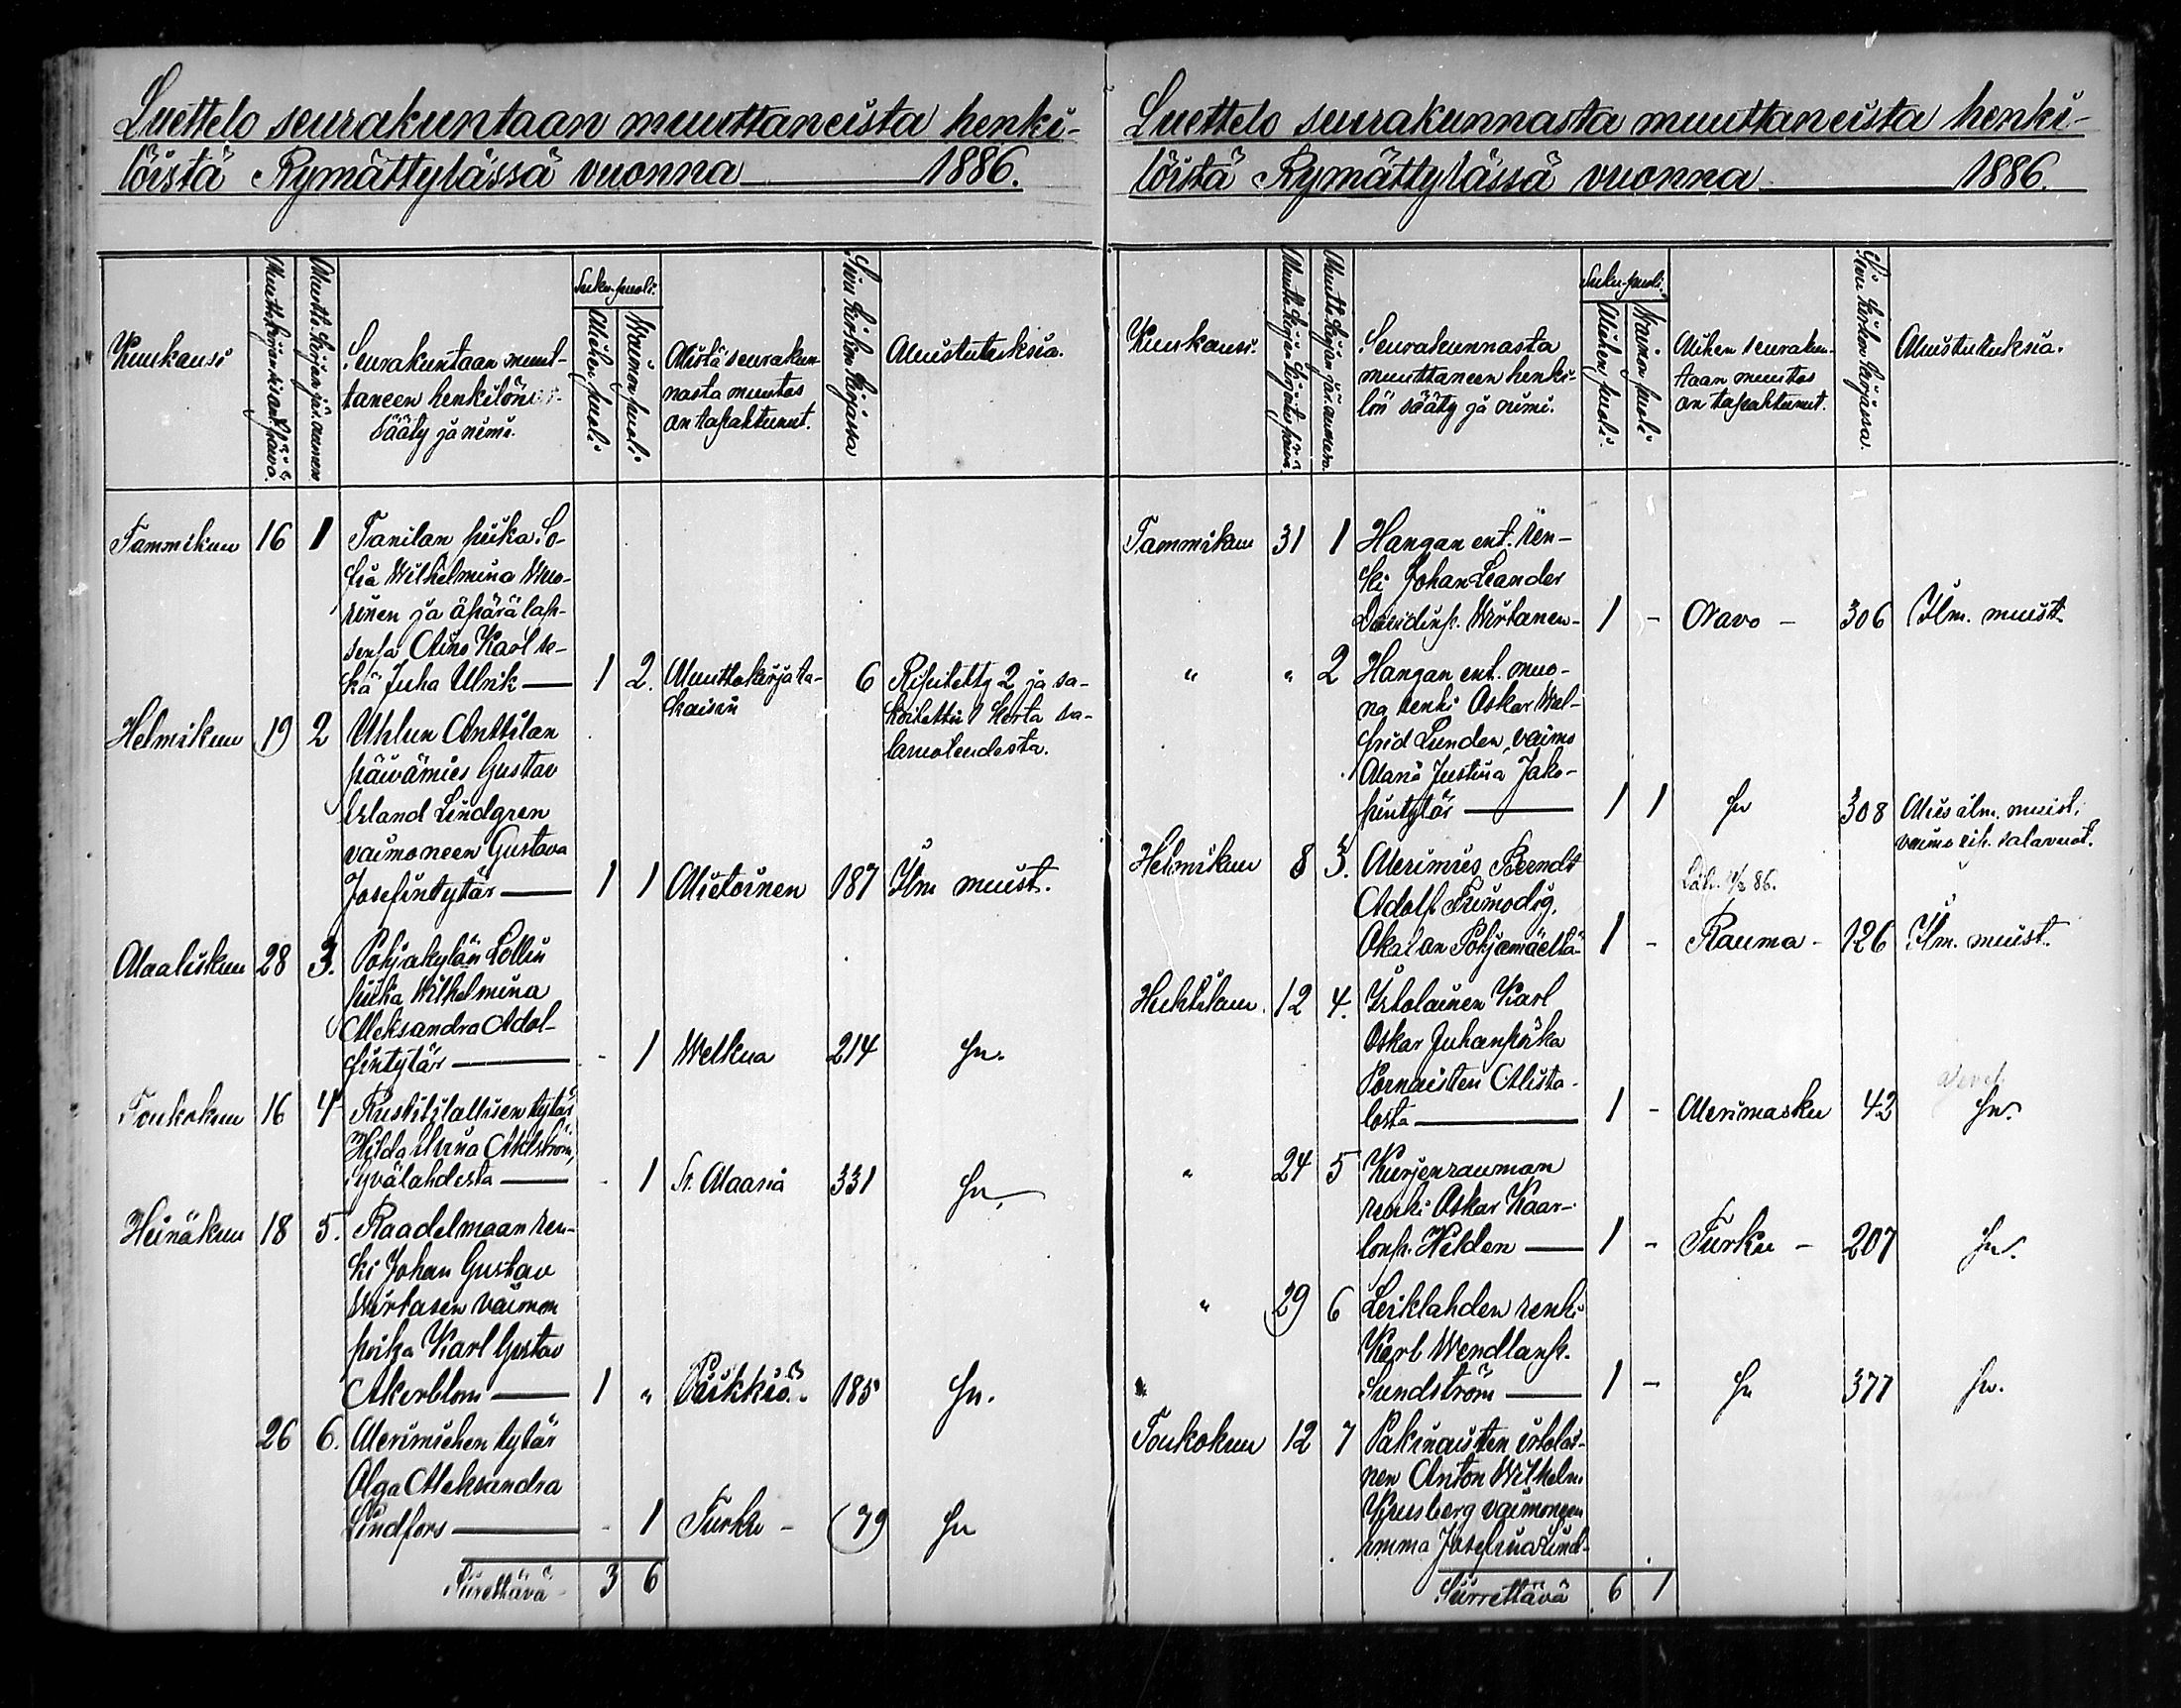 Luettelo seurakuntaan muuttaneista henki-
löistä Rymättylässä vuonna 1886.
Kuukausi
Muuttokirjan
Seurakuntaan muut-
taneen henkilön
Sääty ja nimi.
Suku-puoli.
Miehen puoli
Waimon puoli.
Mistä seurakun-
nasta muutos
on tapahtunut.
Sivu kirkon kirjassa
Muistutuksia.
Tammikuu 16 1 Tanilan piika So-
fia Wilhelmina Wuo-
rinen ja äpärälap-
sensa Aino Karl se-
kä Juha Ulrik — 1 2. Muuttokirja ta- 6 Ripitetty 2 ja sa-
kaisin
koitettu 1 kerta sa-
lavuoteudesta.
Helmikuu 19 2 Uhlun Anttilan
päivämies Gustav
Erland Lindgren
vaimoneen Gustava
Josefintytär — 1 1 Mietoinen 187 Ilm muist.
Maaliskuu 28 3. Pohjakylän Lollin
piika Wilhelmina
Aleksandra Adol-
fintytär — - 1 Welkua 214 Sn.
Toukokuu 16 4 Rustitilallisen tytär
Hilda Ahlström,
Syvälahdesta — - 1 St. Maaria 331 Sn.
Heinäkuu 18 5. Raadelmaan ren-
ki Johan Gustav
Wirtasen vaimon
poika Karl Gustav
Akerblom — 1 " Piikkiö 185 Sn.
26 6. Merimiehen tytär
Olga Aleksandra
Lindfors — - 1 Turku - 79 Sn
Siirettävä - 3 6
Luettelo seurakunnasta muuttaneista henki-
löistä Rymättylässä vuonna 1886.
Kuukausi.
Seurakunnasta
muuttaneen henki-
lön sääty ja nimi.
Suku-puoli.
Miehen puoli.
Waimon puoli
Mihen seurakun-
taan muutos
on tapahtunut.
Sivu kirkon kirjassa.
Muistutuksia.
Tammikuu 31 1 Hangan ent. ren-
ki Johan Leander
Davidinp. Wirtanen - 1 - Navo - 306 Ilm. muist.
" " 2 Hangan ent. muo-
na renki Oskar Wal-
frid Lunden, vaimo
Maria Justina Jako-
pintytär — 1 1 Sn 308 Mies ilm. muist.
vaimo rip. salavuot.
Helmikuu 8 3. Merimies Berndt
Adolf Frimodig,
Okalan Pohjamäeltä 1 - Rauma - 126 Ilm. muist.
Huhtikuu. 12 4. Istolainen Karl
Oskar Juhanpoika
Pornaisten Alista-
losta — 1 - Merimasku 42 Sn.
" 24 5 Kurjenrauman
renki Oskar Kaar-
lonp. Helden — 1 - Turku - 207 Sn.
" 29 6 Leiklahden renki
Karl Wendlanp.
Sundström — 1 - Sn 377 Sn.
Toukokuu 12 7 Pakinaisten istolai-
nen Anton Wilhelm
Krusberg vaimoneen
Emma Josefina Lind-
Siirrettävä 6 1